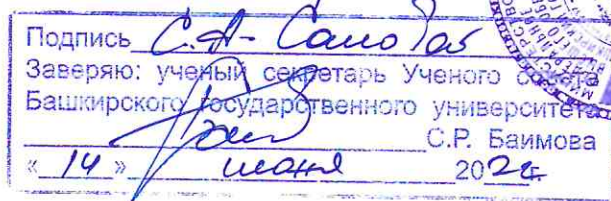 Подпись С.А.
Заверяю: ученый секретарь Ученого совета
Башкирского государственного университета
С.Р. Баимова
«14» июня 2022г.